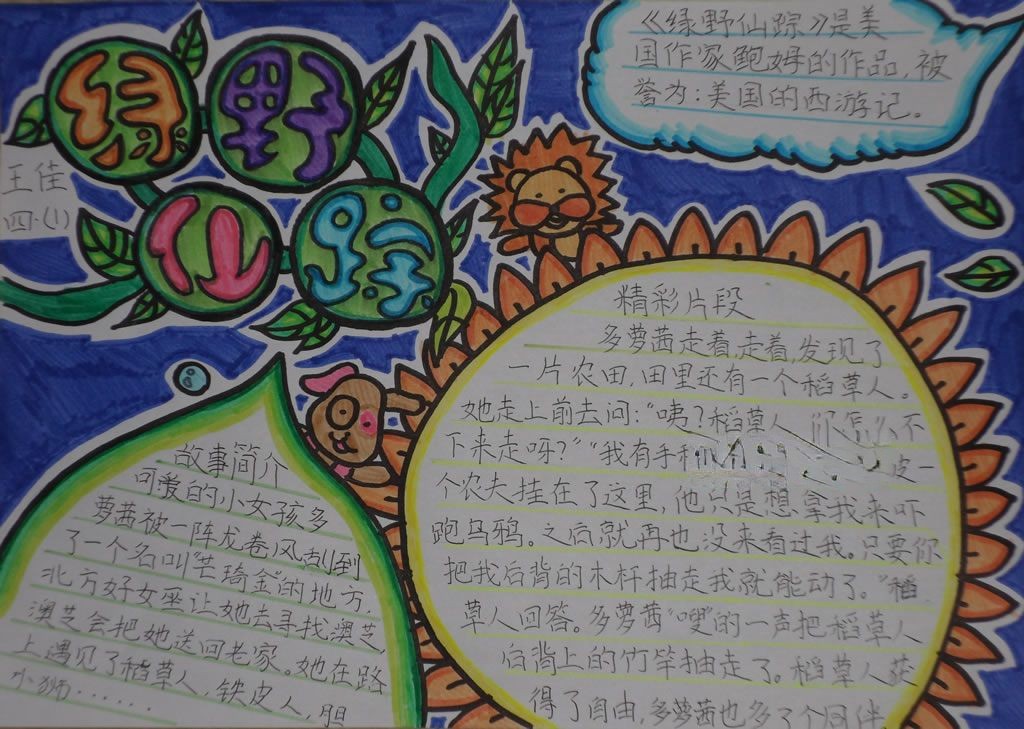 绿野
仙踪
王佳
四.(1)
《绿野仙踪》是美
国作家鲍姆的作品,被
誉为:美国的西游记。
精彩片段
多萝茜走着,走着,发现了
一片农田,田里还有一个稻草人。
她走上前去问:“咦?稻草人 你怎么不
下来走呀?”“我有手 皮一
个农夫挂在了这里,他只是想拿我来吓
跑乌鸦。之后就再也没来看过我。只要你
把我后背的木杆抽走我就能动了。”稻
草人回答。多萝茜“嗖”的一声把稻草人
后背上的竹竿抽走了。稻草人获
得了自由,多萝茜也多了个同伴
故事简介
可爱的小女孩多
萝茜被一阵龙卷风刮到
了一个名叫“芒琦金”的地方.
北方好女座让她去寻找澳芝,
澳芝会把她送回老家。她在路
上遇见了稻草人,铁皮人,胆
小狮.....